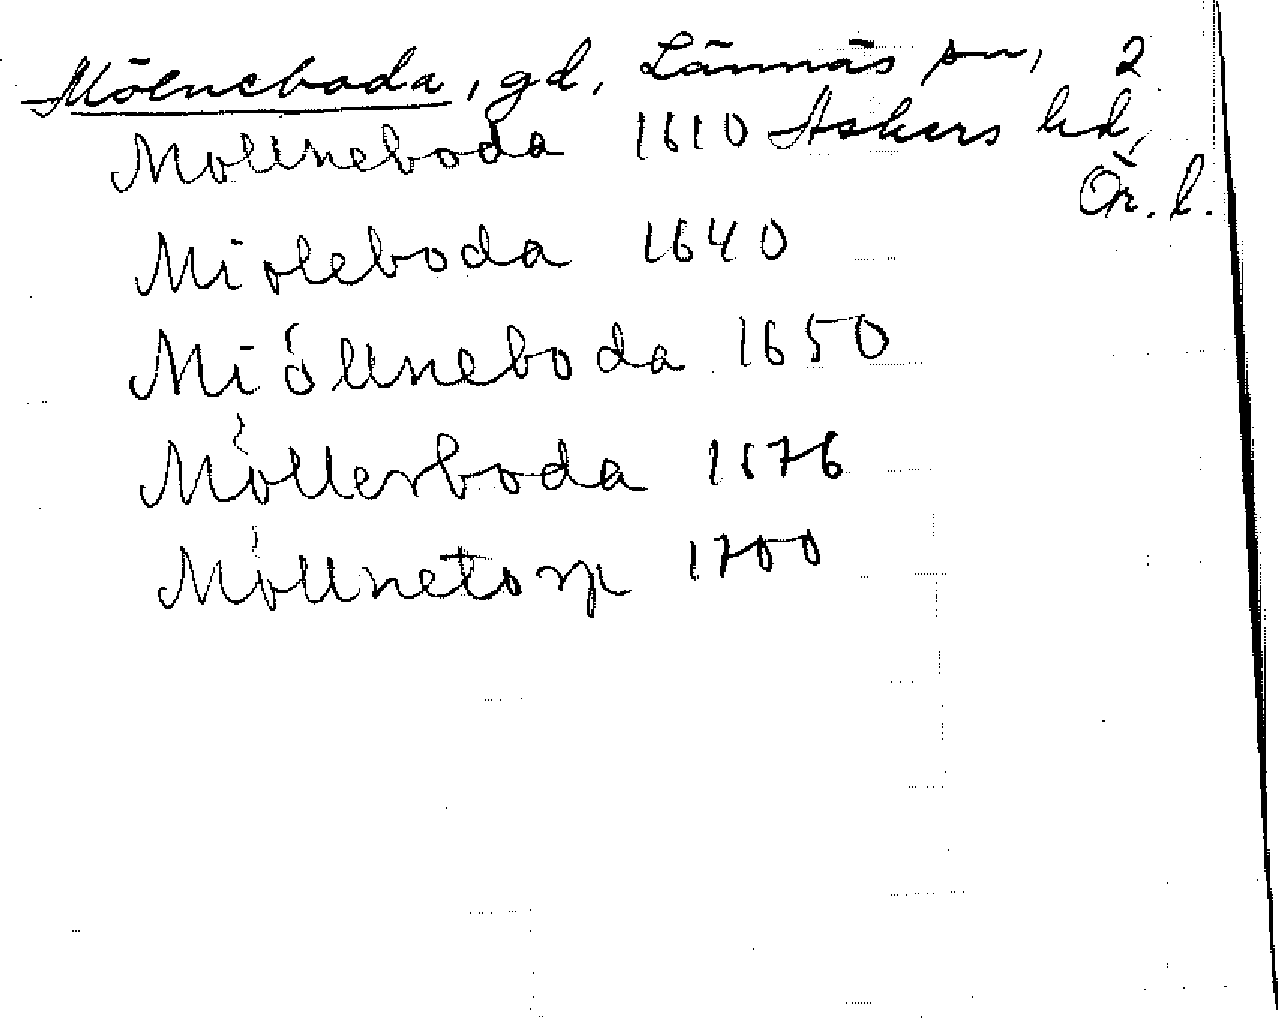 Mölneboda, gd, Lännäs sn, 2
Askers hd,
Ör. l.
Mollneboda 1610
Mioleboda 1640
Miöllneboda 1650
Möllerboda 1676
Möllnetorp 1700